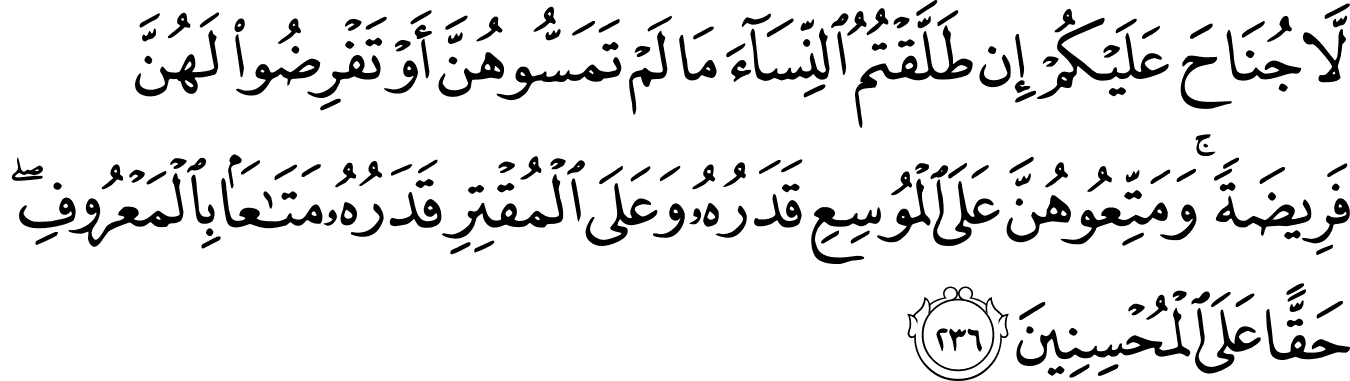 لَّا جُنَاحَ عَلَيْكُمْ إِن طَلَّقْتُمُ ٱلنِّسَآءَ مَا لَمْ تَمَسُّوهُنَّ أَوْ تَفْرِضُوا۟ لَهُنَّ
فَرِيضَةً ۚ وَمَتِّعُوهُنَّ عَلَى ٱلْمُوسِعِ قَدَرُهُۥ وَعَلَى ٱلْمُقْتِرِ قَدَرُهُۥ مَتَـٰعًۢا بِٱلْمَعْرُوفِ ۖ
حَقًّا عَلَى ٱلْمُحْسِنِينَ ٢٣٦